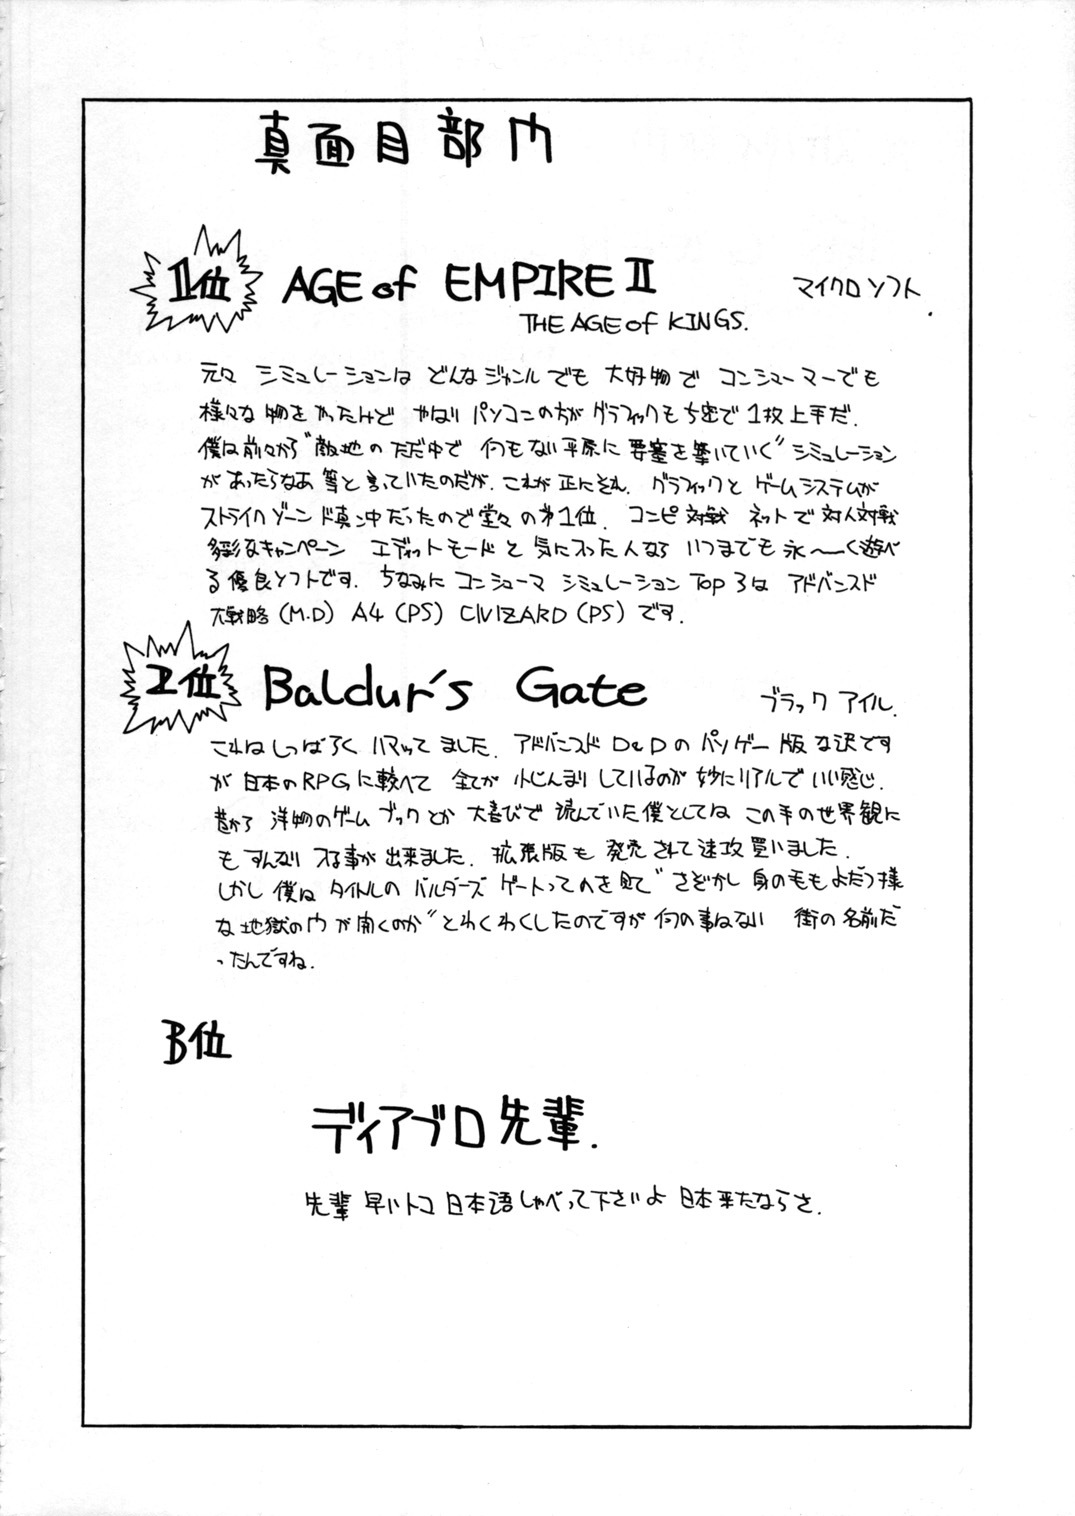 真面目部門
1位 AGE of EMPIRE II マイクロソフト.
THE AGE of KINGS.
元々 シミュレーションは どんなジャンルでも 大好物で コンシューマーでも
様々な物をやったけど やはり パソコンの方が グラフィックも ち密で 1枚上手だ.
僕は前々から"敵地の ただ中で 何もない平原に 要塞を築いていく"シミュレーション
があったらなあ 等と言っていたのだが. これが 正にそれ. グラフィックと ゲームシステムが
ストライクゾーン ド真ン中だったので堂々の第1位. コンピ対戦 ネットで対人対戦
多彩なキャンペーン エディットモードと 気に入った人なら いつまでも 永〜く遊べ
る優良ソフトです. ちなみに コンシューマ シミュレーション TOP 3は アドバンスド
大戦略(M.D) A4 (PS) CIVIZARD (PS) です.
2位 Baldur's Gate ブラックアイル.
これはしっぱらく ハマッてました. アドバンスド D&Dの パソゲー版な訳です
が 日本のRPGに較べて 全てが 小じんまりしているのが 妙にリアルで いい感じ.
昔から 洋物のゲームブックとか 大喜びで 読んでいた僕としては この手の世界観に
もすんなり 入る事が出来ました. 拡張版も 発売されて速攻買いました.
しかし 僕は タイトルの バルダーズ ゲートってのを見て"さぞかし 身の毛もよだつ様
な 地獄の門が開くのか"とわくわくしたのですが 何の事はない 街の名前だ
ったんですね.
B位
ディアブロ先輩.
先輩 早いトコ 日本語しゃべって下さいよ 日本来たならさ.